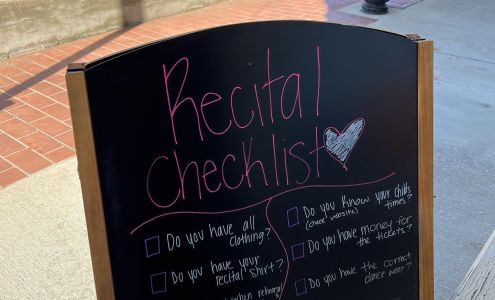 Recital
Checklist
Do you have all
clothing?
Do you have your
recital shirt?
when
Do you know your child's
(check website) times?
Do you have money for
the tickets?
Do you have the correct
dance wear?